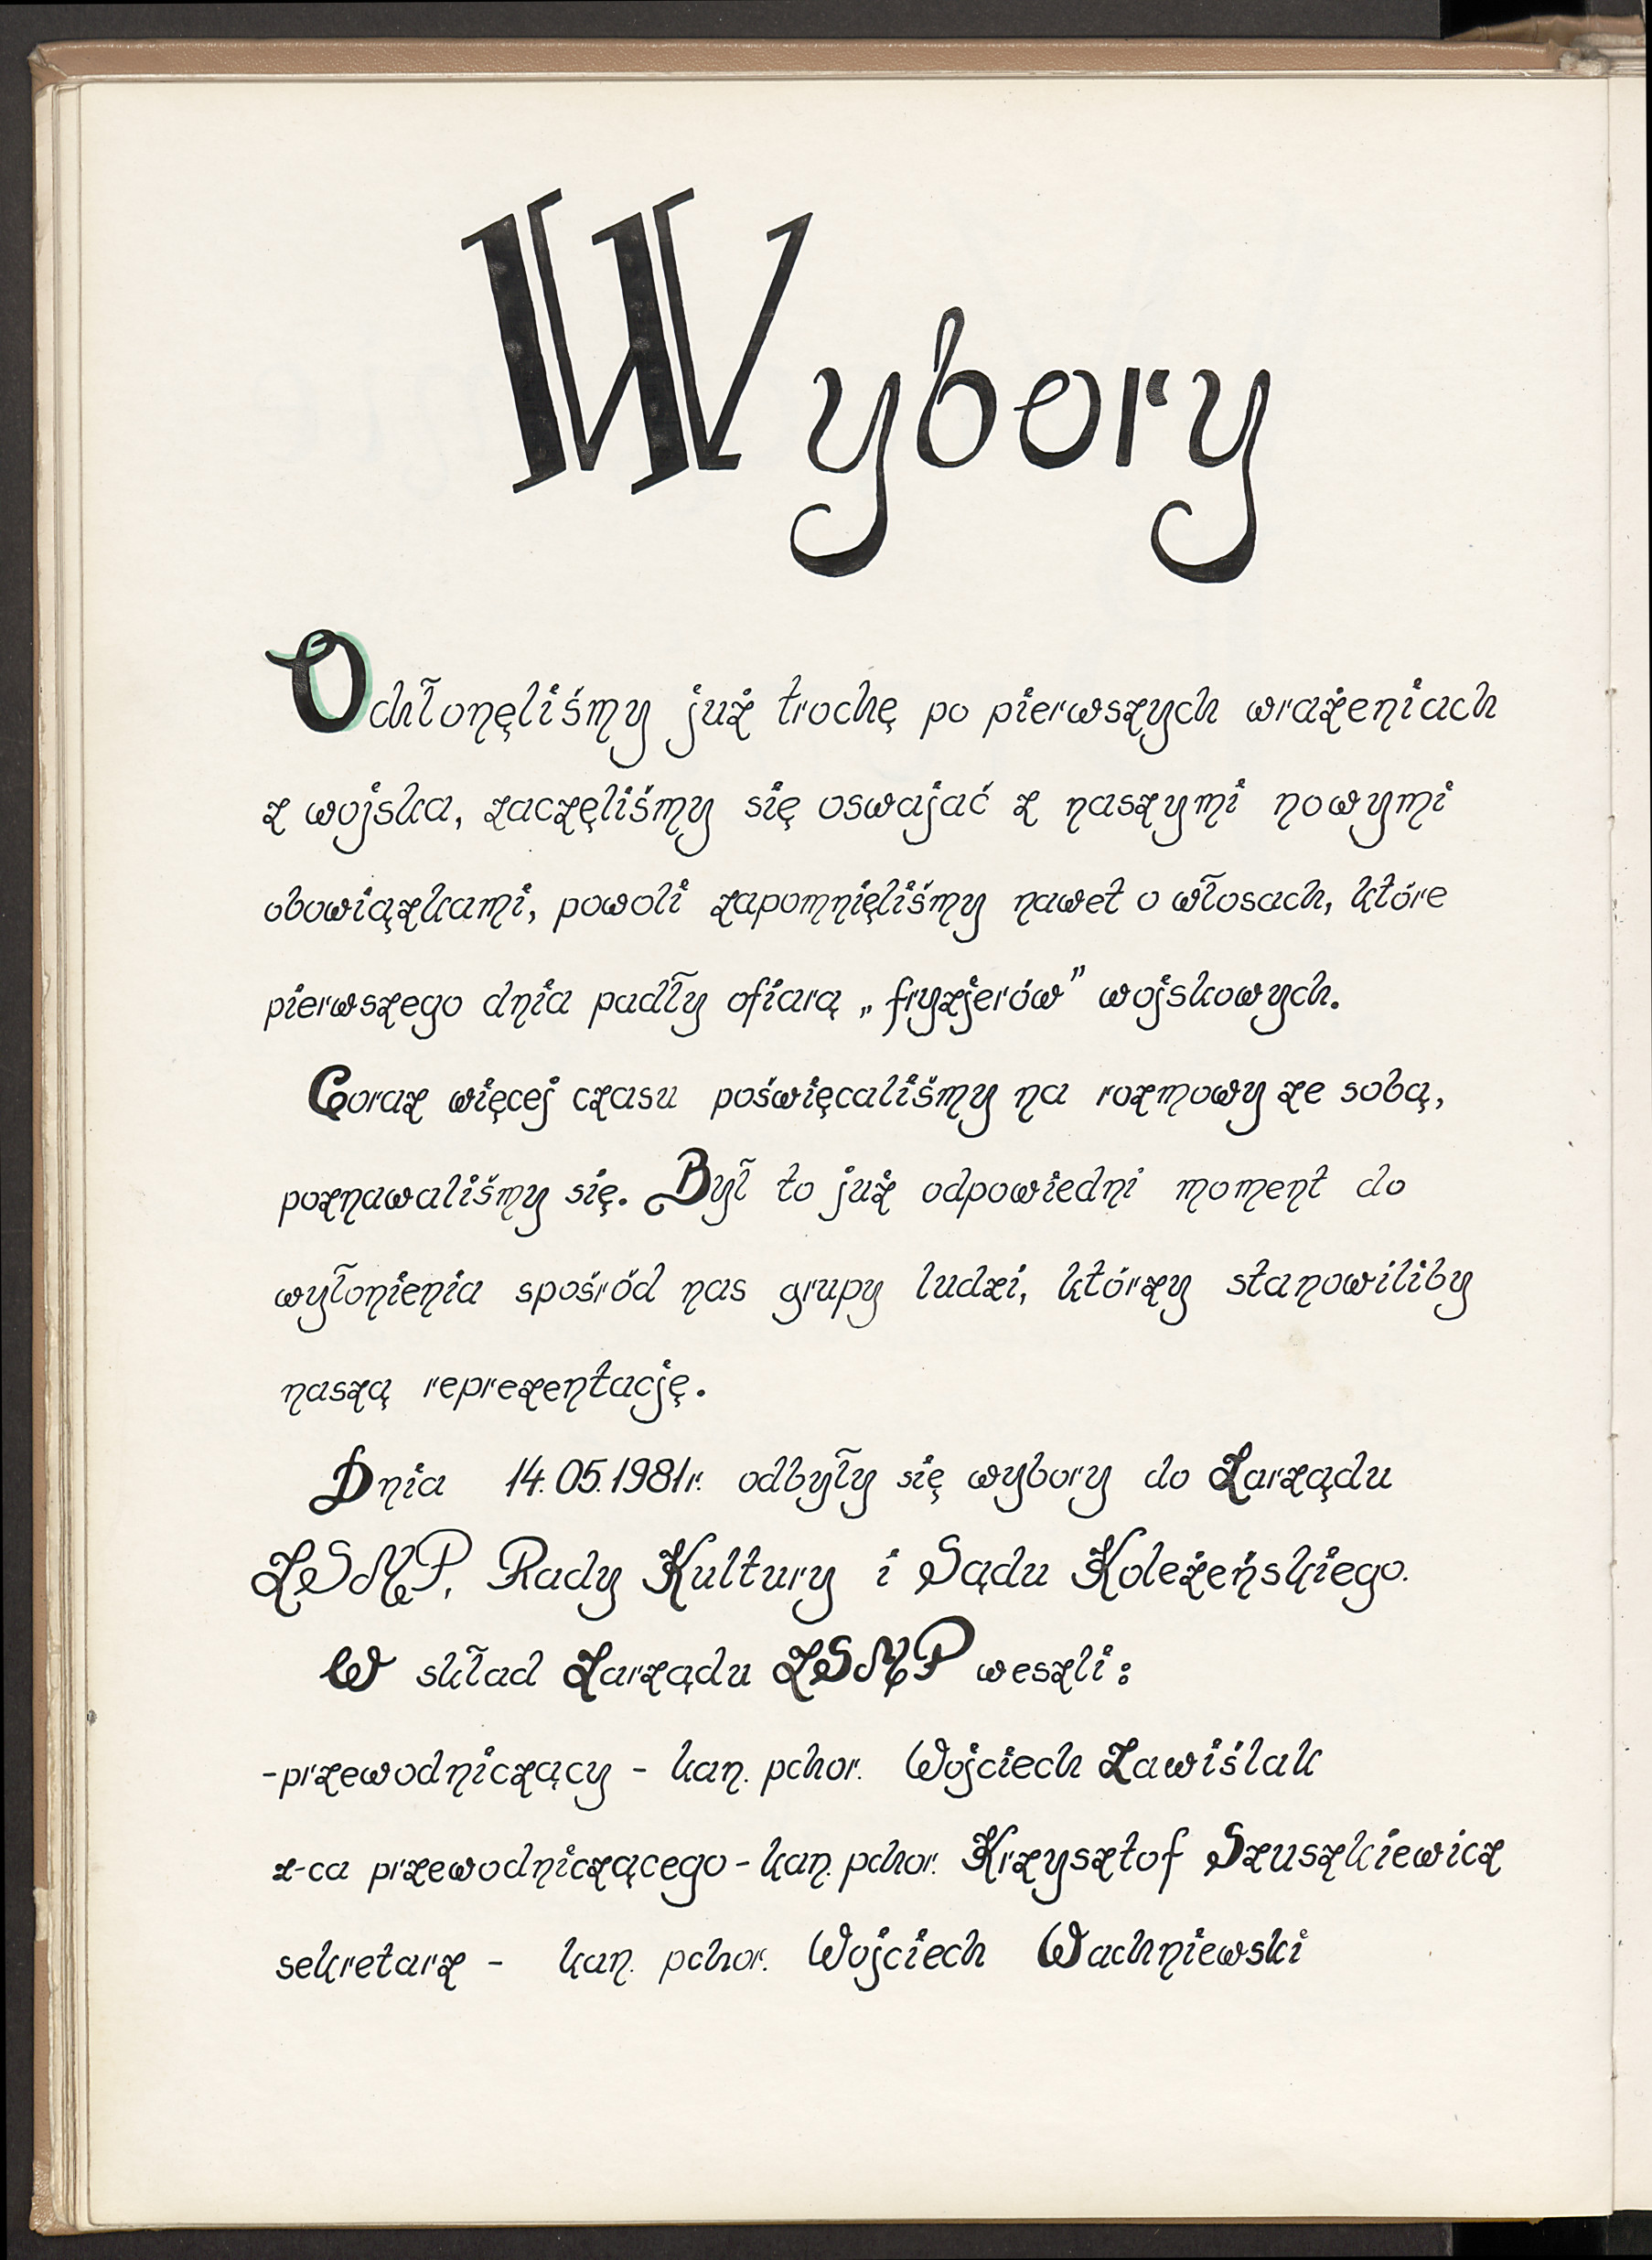 Wybory
Ochłonęliśmy już trochę po pierwszych wrażeniach
z wojska, zaczęliśmy się oswajać z naszymi nowymi
obowiązkami, powoli zapomnięliśmy nawet o włosach, które
pierwszego dnia padły ofiarą „fryzjerów” wojskowych.
Coraz więcej czasu poświęcaliśmy na rozmowy ze sobą,
poznawaliśmy się. Był to już odpowiedni moment do
wyłonienia spośród nas grupy ludzi, którzy stanowiliby
naszą reprezentację.
Dnia 14.05.1981r. odbyły się wybory do Zarządu
ZSMP, Rady Kultury i Sądu Koleżeńskiego.
W skład Zarządu ZSMP weszli:
-przewodniczący - kan. pchor. Wojciech Zawiślak
z-ca przewodniczącego - kan. pchor. Krzysztof Szuszkiewicz
sekretarz - kan. pchor. Wojciech Wachniewski